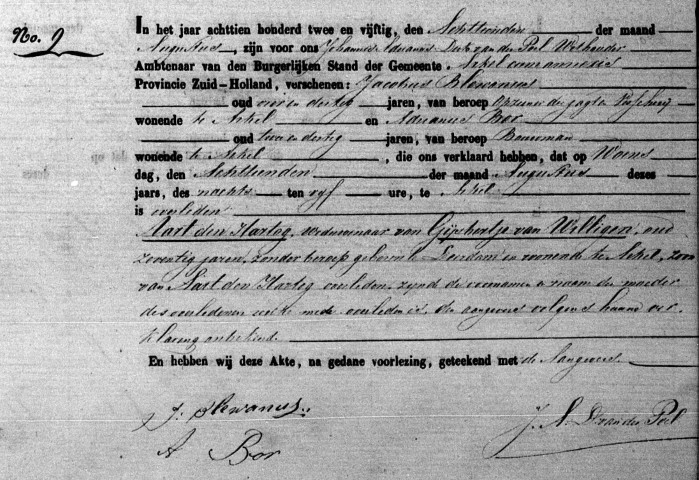 No. 9
In het jaar achttien honderd twee en vijftig, den Achttienden der maand
Augustus, zijn voor ons Johannis Adrianus van der Poel Wethouder
Ambtenaar van den Burgerlijken Stand der Gemeente Arkel
Provincie Zuid-Holland, verschenen: Jacobus
oud vier en dertig jaren, van beroep Opziener der jagt en Visscherij
wonende te Arkel en Adrianus Bor
oud twee en dertig jaren, van beroep Bouwman
wonende te Arkel, die ons verklaard hebben, dat op Woens
dag, den Achttienden der maand Augustus dezes
jaars, des nachts ten vyf ure, te Arkel
is overleden
Aart den Hartog, weduwenaar van Gijsbertje van Willigen, oud
zeventig jaren, zonder beroep geboren te Leerdam en wonende te Arkel, zoon
van Aart den Hartog overleden, zynde de voornamen en naam der moeder
des overledenen welke mede overleden is, den aangevers volgens hunne ver
klaring onbekend.
En hebben wij deze Akte, na gedane voorlezing, geteekend met de Aangevers.
J.
A Bor
J. A. D. van der Poel